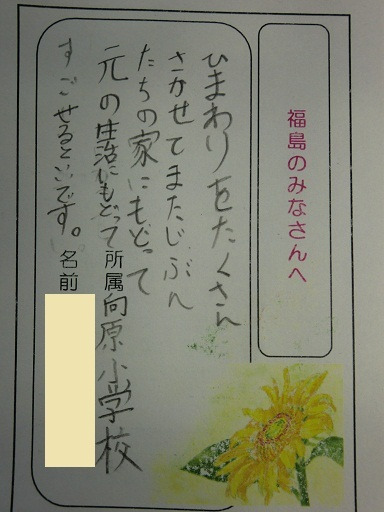 福島のみなさんへ
ひまわりをたくさん
さかせてまたじぶん
たちの家にもどって
元の生活にもどって
すごせるといいです。
所属 向原小学校
名前